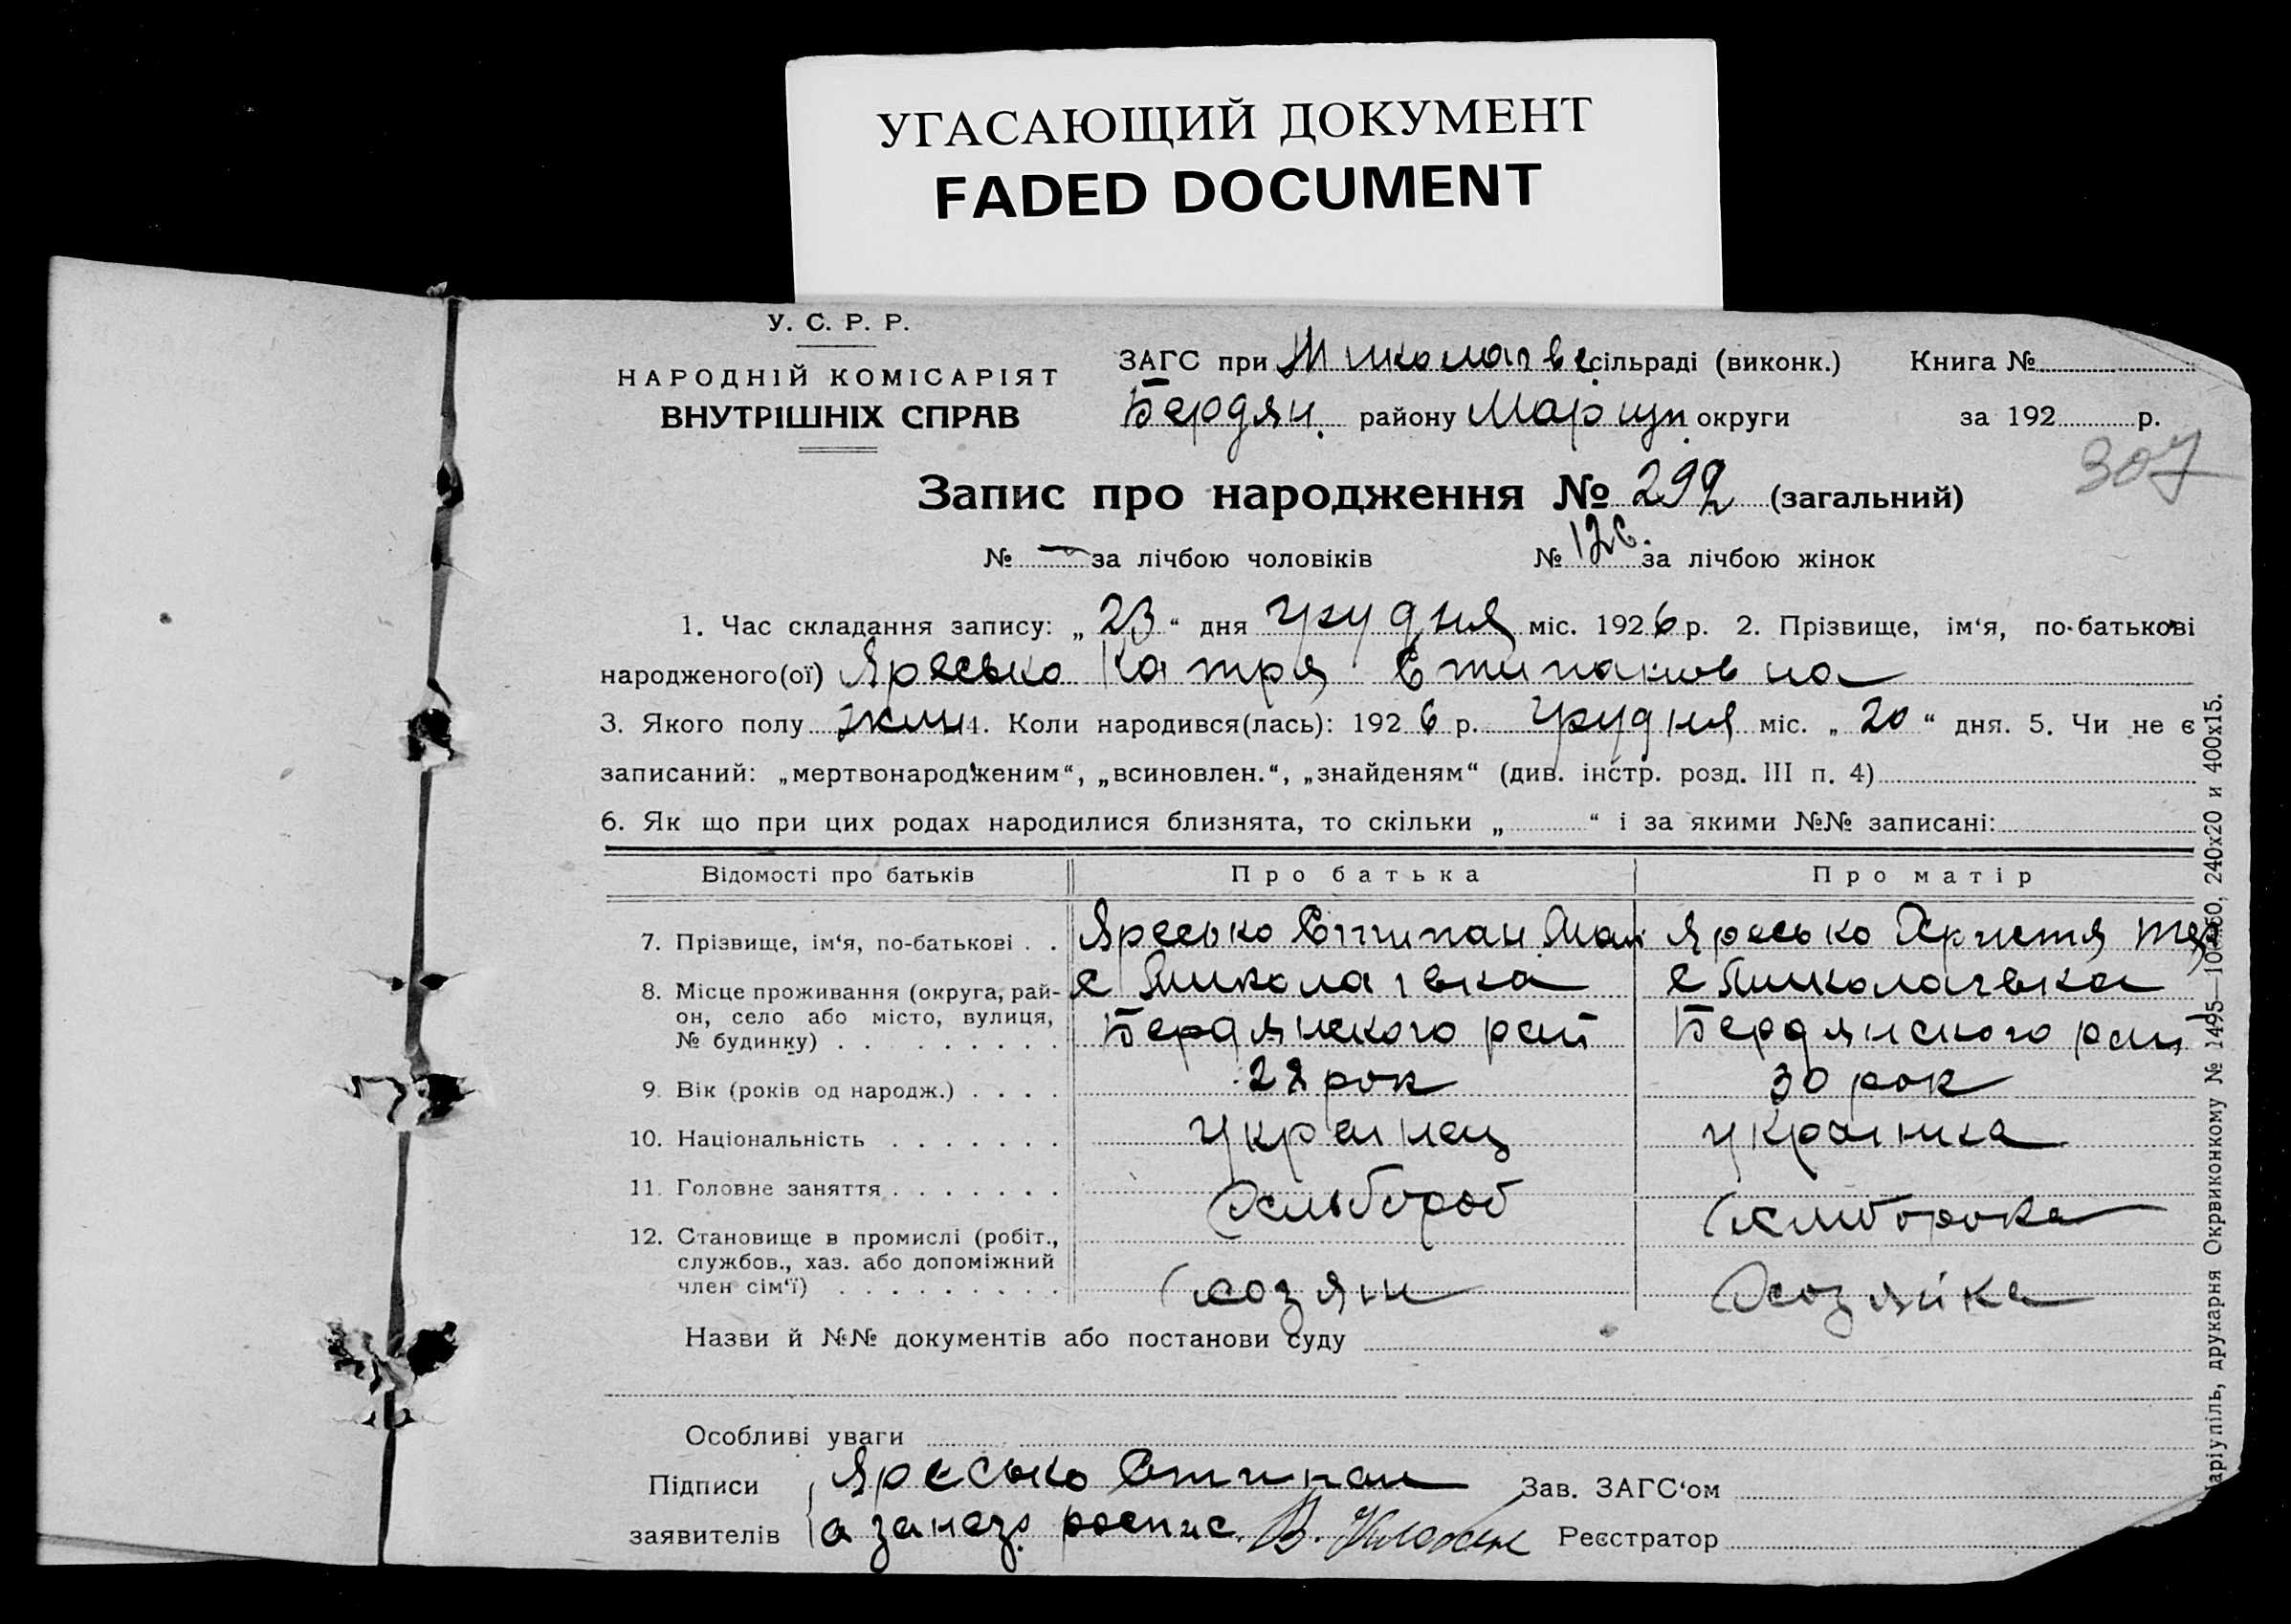 УГАСАЮЩИЙ ДОКУМЕНТ
FADED DOCUMENT
У. С. Р. Р.
НАРОДНІЙ КОМІСАРІЯТ
ВНУТРІШНІХ СПРАВ
ЗАГС при Миколаївс сільраді (виконк.) Книга №
Бердян. району Маріуп. округи за 192 р.
307
Запис про народження № 292 (загальний)
№ — за лічбою чоловіків № 126. за лічбою жінок
1. Час складання запису: „23“ дня грудня міс. 1926 р. 2. Прізвище, ім‘я, по-батькові
народженого(ої) Яресько Катря Стипановна
3. Якого полу жін 4. Коли народився(лась): 1926 р. грудня міс. „20“ дня. 5. Чи не є
записаний: „мертвонародженим“, „всиновлен.“, „знайденям“ (див. інстр. розд. III п. 4)
6. Як що при цих родах народилися близнята, то скільки „ “ і за якими №№ записані:
Відомості про батьків Про батька Про матір
7. Прізвище, ім‘я, по-батькові . . Яресько Стипан Яресько Христя
8. Місце проживання (округа, рай- с Миколаівка с Миколаівка
он, село або місто, вулиця,
№ будинку) . . . . . . . . . Бердянського рай Бердянского рай
9. Вік (років од народж.) . . . . 28 рок 30 рок
10. Національність . . . . . . . Украінец украінка
11. Головне заняття . . . . . . . Хлібороб
12. Становище в промислі (робіт.,
службов., хаз. або допоміжний
член сім‘ї) . . . . . . . . . хозяін Хозяйка
Назви й №№ документів або постанови суду
Особливі уваги
Підписи Яресько Стипан Зав. ЗАГС‘ом
заявителів а за нез. роспис. В. Реєстратор
аріупіль, друкарня Окрвиконкому № 1495— 240х20 и 400х15.